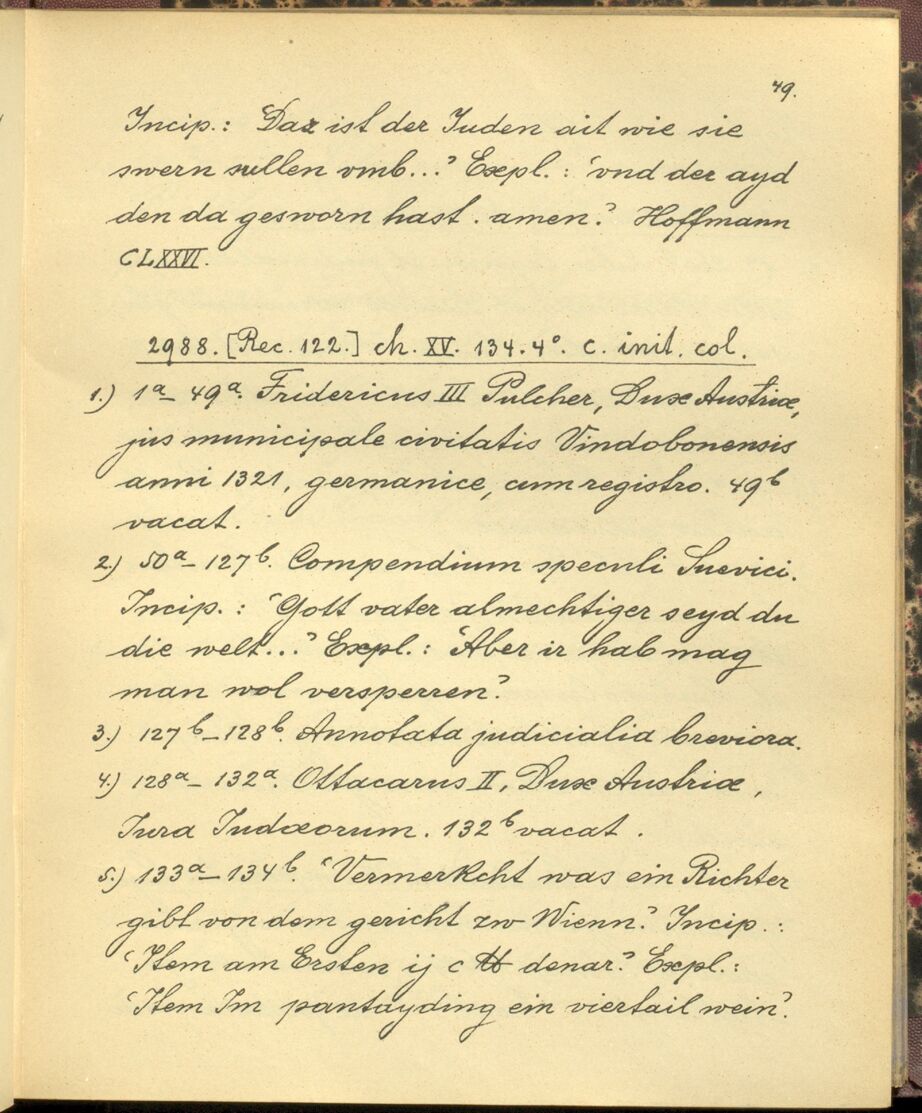 49.
Incip.: Daz ist der Juden ait wie sie
swern sullen vmb...' Expl.: 'vnd der ayd
den da gesworn hast. amen.' Hoffmann
CLXXVI.
2988. [Rec. 122.] ch. XV. 134. 4°. c. init. col.
1.) 1ª–49ª. Fridericus III Pulcher, Dux Austriæ,
jus municipale civitatis Vindobonensis
anni 1321, germanice, cum registro. 49ᵇ
vacat.
2.) 50ª–127ᵇ. Compendium speculi Suevici.
Incip.: 'Gott vater almechtiger seyd du
die welt...' Expl.: 'Aber ir hab mag
man wol versperren.'
3.) 127ᵇ–128ᵇ. Annotata judicialia breviora.
4.) 128ª–132ª. Ottacarus II, Dux Austriæ,
Jura Judæorum. 132ᵇ vacat.
5.) 133ª–134ᵇ. 'Vermerkcht was ein Richter
gibt von dem gericht zw Wienn.' Incip.:
'Item am Ersten ij c ℔ denar.' Expl.:
'Item Im pantayding ein viertail wein.'